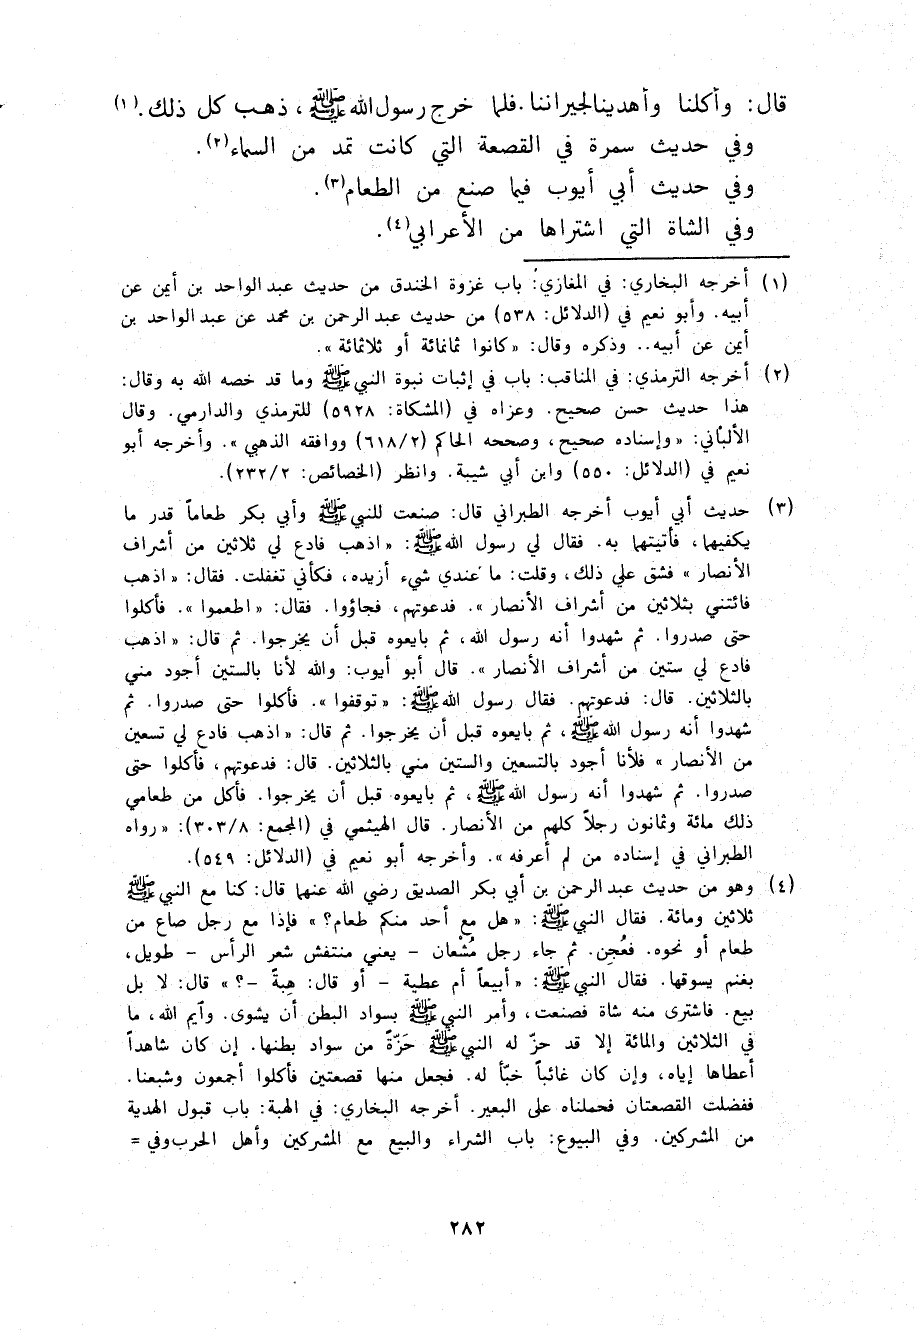 قال: وأكلنا وأهدينا لجيراننا. فلما خرج رسول الله ﷺ، ذهب كل ذلك.(١)
وفي حديث سمرة في القصعة التي كانت تمد من السماء(٢).
وفي حديث أبي أيوب فيما صنع من الطعام(٣).
وفي الشاة التي اشتراها من الأعرابي(٤).
(١) أخرجه البخاري: في المغازي: باب غزوة الخندق من حديث عبد الواحد بن أيمن عن
أبيه. وأبو نعيم في (الدلائل: ٥٣٨) من حديث عبد الرحمن بن محمد عن عبد الواحد بن
أيمن عن أبيه.. وذكره وقال: «كانوا ثمانمائة أو ثلاثمائة».
(٢) أخرجه الترمذي: في المناقب: باب في إثبات نبوة النبي ﷺ وما قد خصه الله به وقال:
هذا حديث حسن صحيح. وعزاه في (المشكاة: ٥٩٢٨) للترمذي والدارمي. وقال
الألباني: «وإسناده صحيح، وصححه الحاكم (٦١٨/٢) ووافقه الذهبي». وأخرجه أبو
نعيم في (الدلائل: ٥٥٠) وابن أبي شيبة. وانظر (الخصائص: ٢٣٢/٢).
(٣) حديث أبي أيوب أخرجه الطبراني قال: صنعت للنبي ﷺ وأبي بكر طعاماً قدر ما
يكفيهما، فأتيتهما به. فقال لي رسول الله ﷺ: «اذهب فادع لي ثلاثين من أشراف
الأنصار» فشق علي ذلك، وقلت: ما عندي شيء أزيده، فكأني تغفلت. فقال: «اذهب
فائتني بثلاثين من أشراف الأنصار». فدعوتهم، فجاؤوا. فقال: «اطعموا». فأكلوا
حتى صدروا. ثم شهدوا أنه رسول الله، ثم بايعوه قبل أن يخرجوا. ثم قال: «اذهب
فادع لي ستين من أشراف الأنصار». قال أبو أيوب: والله لأنا بالستين أجود مني
بالثلاثين. قال: فدعوتهم. فقال رسول الله ﷺ: «توقفوا». فأكلوا حتى صدروا. ثم
شهدوا أنه رسول الله ﷺ، ثم بايعوه قبل أن يخرجوا. ثم قال: «اذهب فادع لي تسعين
من الأنصار» فلأنا أجود بالتسعين والستين مني بالثلاثين. قال: فدعوتهم، فأكلوا حتى
صدروا. ثم شهدوا أنه رسول الله ﷺ، ثم بايعوه قبل أن يخرجوا. فأكل من طعامي
ذلك مائة وثمانون رجلاً كلهم من الأنصار. قال الهيثمي في (المجمع: ٣٠٣/٨): «رواه
الطبراني في إسناده من لم أعرفه». وأخرجه أبو نعيم في (الدلائل: ٥٤٩).
(٤) وهو من حديث عبد الرحمن بن أبي بكر الصديق رضي الله عنهما قال: كنا مع النبي ﷺ
ثلاثين ومائة. فقال النبي ﷺ: «هل مع أحد منكم طعام؟» فإذا مع رجل صاع من
طعام أو نحوه. فعُجِن. ثم جاء رجل مُشْعان - يعني منتفش شعر الرأس - طويل،
بغنم يسوقها. فقال النبي ﷺ: «أبيعاً أم عطية - أو قال: هِبةً -؟» قال: لا بل
بيع. فاشترى منه شاة فصنعت، وأمر النبي ﷺ بسواد البطن أن يشوى. وآيم الله، ما
في الثلاثين والمائة إلا قد حزّ له النبي ﷺ حَزّةً من سواد بطنها. إن كان شاهداً
أعطاها إياه، وإن كان غائباً خبّأ له. فجعل منها قصعتين فأكلوا أجمعون وشبعنا.
ففضلت القصعتان فحملناه على البعير. أخرجه البخاري: في الهبة: باب قبول الهدية
من المشركين. وفي البيوع: باب الشراء والبيع مع المشركين وأهل الحرب وفي =
٢٨٢